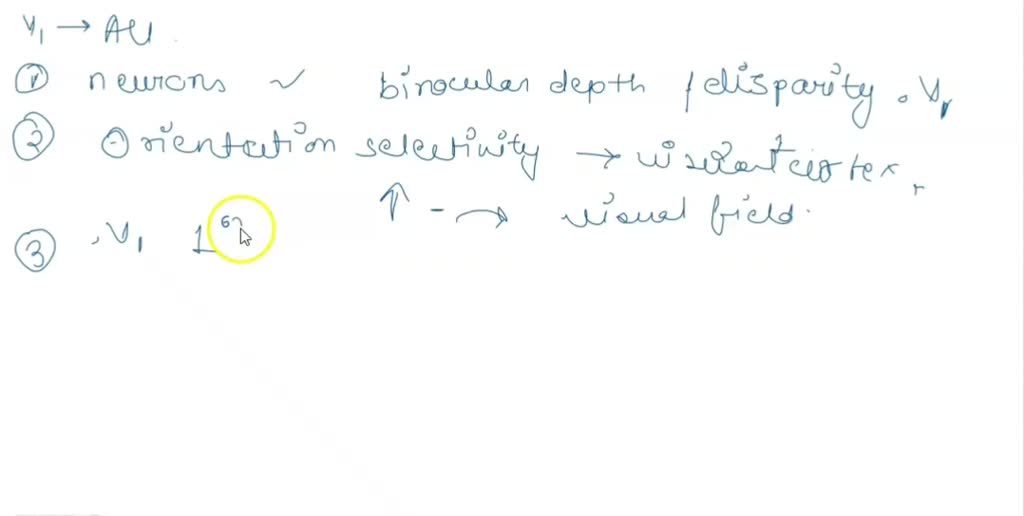 V₁ → All.
① neurons ✓ binocular depth / disparity. V₁
② Orientation selectivity → visual cortex,
↑ - → visual field.
③ , V₁ 1